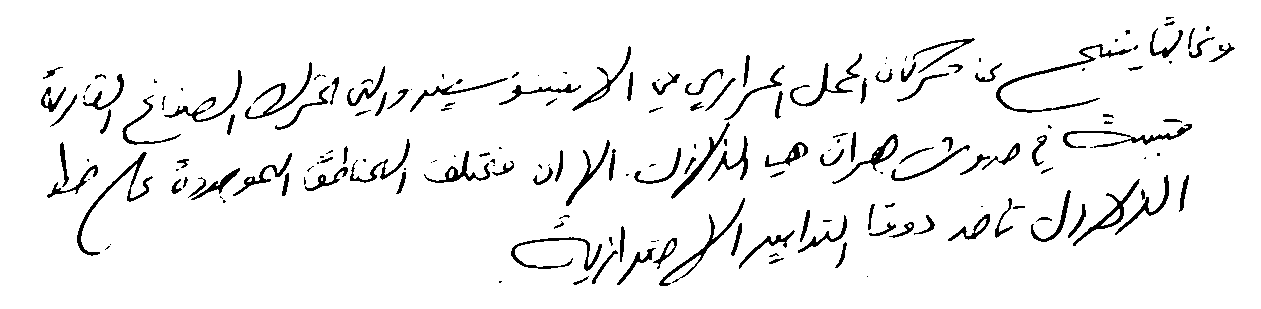 وغالبًا ينتج عن حركات الحمل الحراري في الاثينوسفير والتي تحرك الصفائح القارية
متسببة في حدوث هزات هي الزلازل. الا ان مختلف المناطق الموجودة على خط
الزلازل تأخد دومًا التدابير الاحترازية